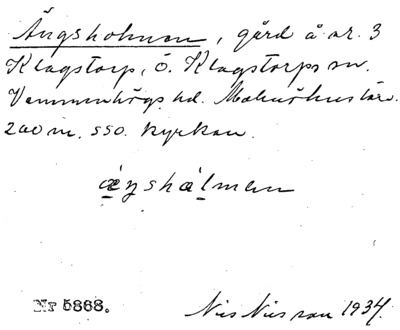 Ängsholmen, gård å nr. 3
Klagstorp, Ö. Klagstorps sn.
Vemmenhögs hd. Malmöhus län.
200 m. SSO. kyrkan.
æŋshàlmen
Nr 5868.
Nils Nilsson 1934.